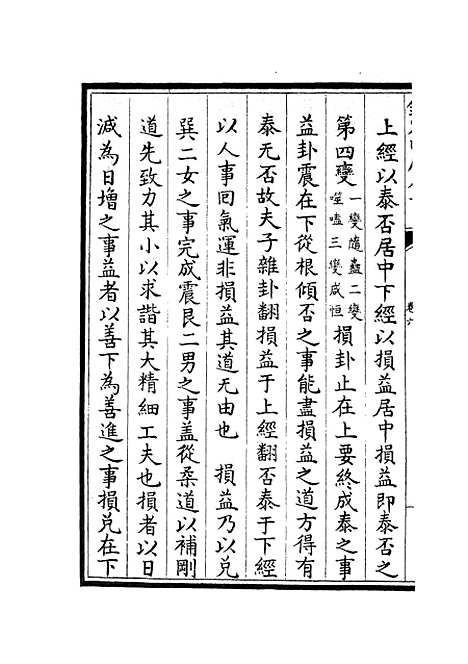 上經以泰否居中下經以損益居中損益即泰否之
第四變一變隨蠱二變噬嗑三變咸恒損卦止在上要終成泰之事
益卦震在下從根傾否之事能盡損益之道方得有
泰无否故夫子雜卦翻損益于上經翻否泰于下經
以人事回氣運非損益其道无由也　損益乃以兌
巽二女之事完成震艮二男之事盖從柔道以補剛
道先致力其小以求諧其大精細工夫也損者以日
減為日增之事益者以善下為善進之事損兌在下
卷六